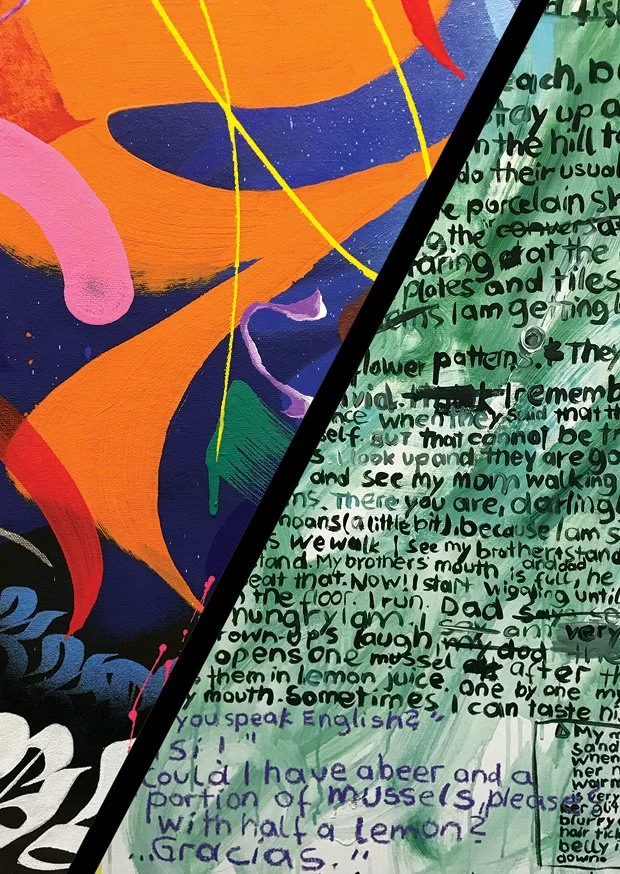 each, b
tidy up a
n the hill to
do their usual
porcelain sh
g the "conversat
aring at the
plates and tiles
I am getting
flower pattern. They
ivid. I rememb
nce when they said that th
self BUT that cannot be tr
s I look up and they are go
and see my mom walking
ns. There you are, darling
moans (a little bit), because I am s
s we walk I see my brother + stand
tand. My brothers' mouth and dad
eat that. Now I'll start is full, he
wiggling until
n the floor. I run. Dad
hungry am I say am very
rown-ups laugh, my dad the
opens one mussel after th
s them in lemon juice. one by one my
y mouth. Sometimes I can taste hi
you speak English?"
si!"
Could I have a beer and a
portion of mussels, please
with half a lemon?
...Gracias."
My m
sand
when
her n
warm
very
her gli
blurry
hair tick
belly i
down.